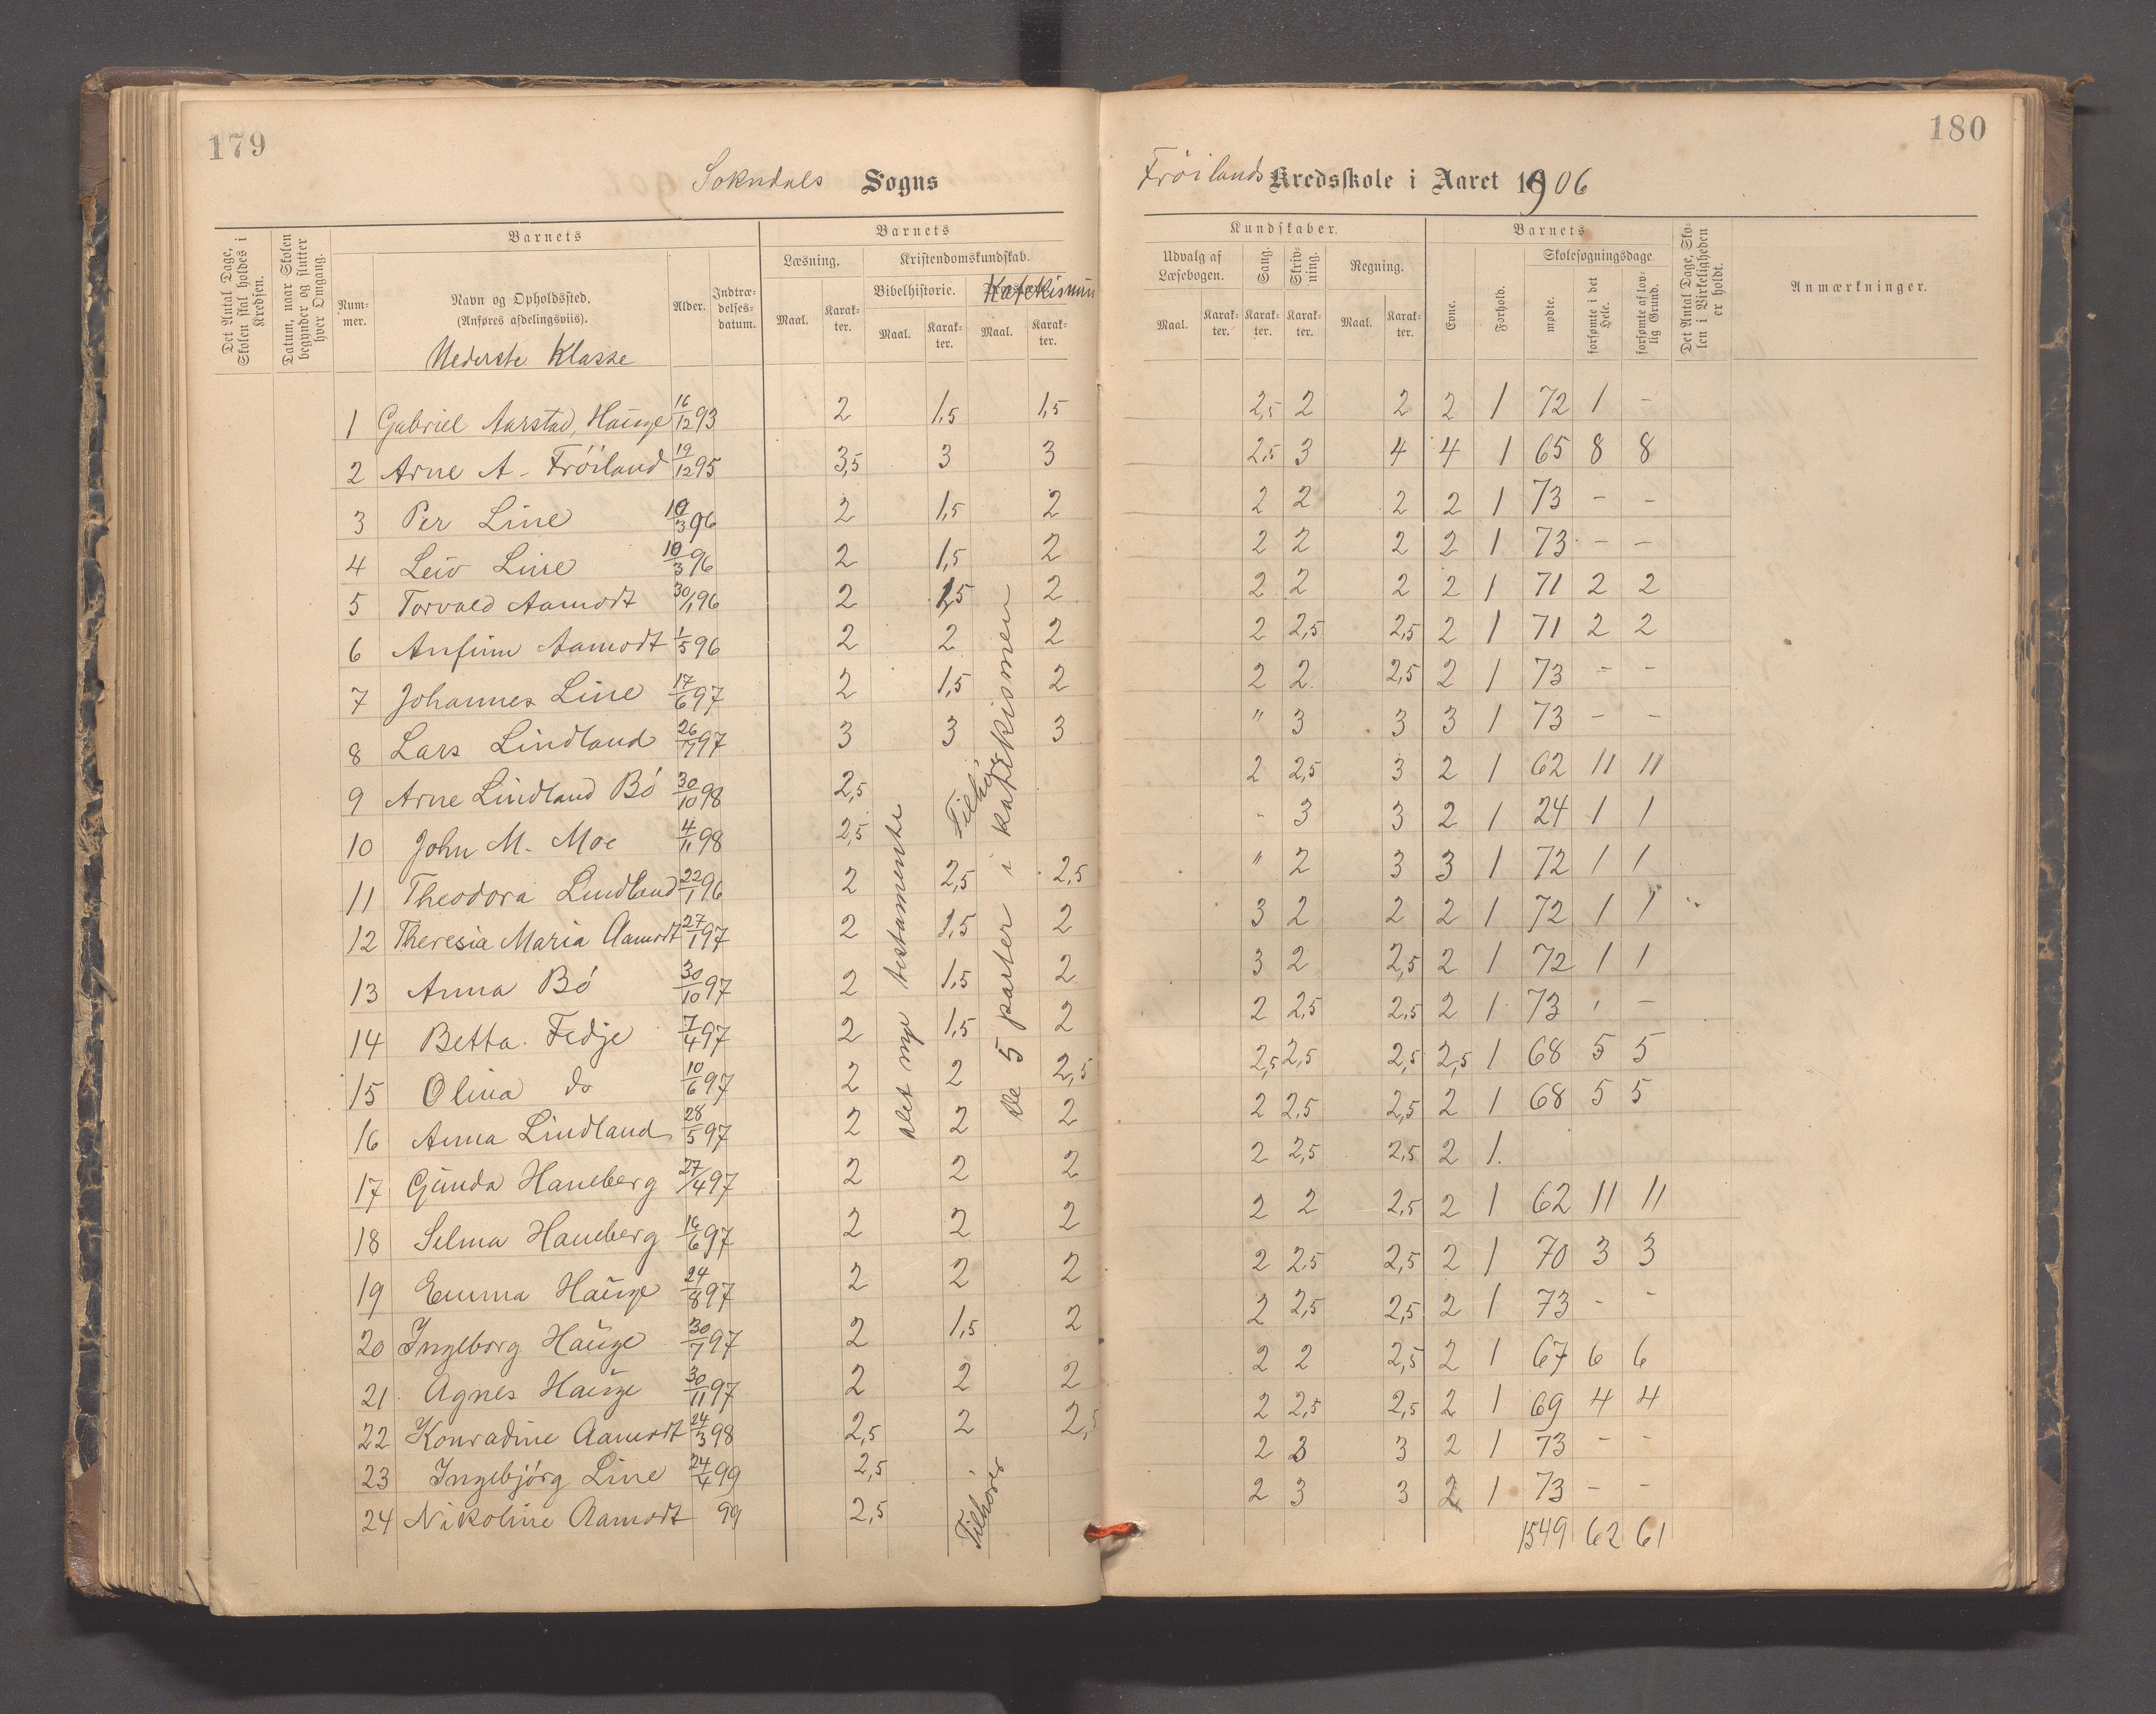 179
Sokndals Sogns
Det Antal Dage, Skolen skal holdes i Kredsen.
Datum, naar Skolen begynder og slutter hver Omgang.
Barnets
Num-
mer.
Navn og Opholdssted.
(Anføres afdelingsviis).
Nederste Klasse
Alder.
Indtræ-
delses-
datum.
Barnets
Læsning.
Kristendomskundskab.
Bibelhistorie. Katekismus
Maal. Karak-
ter. Maal. Karak-
ter. Maal. Karak-
ter.
1 Gabriel Aarstad, Hauge 16/12 93 2 1,5 1,5
2 Arne A. Fröiland 19/12 95 3,5 3 3
3 Per Line 10/3 96 2 1,5 2
4 Leiv Line 10/3 96 2 1,5 2
5 Torvald Aamodt 30/1 96 2 1,5 2
6 Anfinn Aamodt 1/5 96 2 2 2
7 Johannes Line 17/6 97 2 1,5 2
8 Lars Lindland 26/7 97 3 3 3
9 Arne Lindland Bö 30/10 98 2,5
10 John M. Moe 4/11 98 2,5
11 Theodora Lindland 22/1 96 2 2,5 2,5
12 Theresia Maria Aamodt 27/1 97 2 1,5 2
13 Anna Bö 30/10 97 2 1,5 2
14 Betta Fedje 7/4 97 2 1,5 2
15 Olina do 10/6 97 2 2 2,5
16 Anna Lindland 28/5 97 2 2 2
17 Gunda Haneberg 27/4 97 2 2 2
18 Selma Haneberg 16/6 97 2 2 2
19 Emma Hauge 24/8 97 2 2 2
20 Ingeborg Hauge 30/7 97 2 1,5 2
21 Agnes Hauge 30/11 97 2 2 2
22 Konradine Aamodt 24/3 98 2,5 2 2,5
23 Ingebjörg Line 24/4 99 2,5
24 Nikoline Aamodt 99 2,5
det nye testamente
Tilhör
De 5 parter i katekismen
Tilhörer
180
Fröilands Kredsskole i Aaret 1906
Kundskaber.
Udvalg af
Læsebogen.
Sang.
Skriv-
ning.
Regning.
Maal. Karak-
ter. Karak-
ter. Karak-
ter. Maal. Karak-
ter.
Barnets
Evne.
Forhold.
Skolesøgningsdage.
mødte.
forsømte i det
Hele.
forsømte af lov-
lig Grund.
Det Antal Dage, Sko-
len i Virkeligheden
er holdt.
Anmærkninger.
2,5 2 2 2 1 72 1 -
2,5 3 4 4 1 65 8 8
2 2 2 2 1 73 - -
2 2 2 2 1 73 - -
2 2 2 2 1 71 2 2
2 2,5 2,5 2 1 71 2 2
2 2 2,5 2 1 73 - -
" 3 3 3 1 73 - -
2 2,5 3 2 1 62 11 11
- 3 3 2 1 24 1 1
" 2 3 3 1 72 1 1
3 2 2 2 1 72 1 1
3 2 2,5 2 1 72 1 1
2 2,5 2,5 2 1 73 - -
2,5 2,5 2,5 2,5 1 68 5 5
2 2,5 2,5 2 1 68 5 5
2 2,5 2,5 2 1
2 2 2,5 2 1 62 11 11
2 2,5 2,5 2 1 70 3 3
2 2,5 2,5 2 1 73 - -
2 2 2,5 2 1 67 6 6
2 2,5 2,5 2 1 69 4 4
2 3 3 2 1 73 - -
2 3 3 2 1 73 - -
1549 62 61